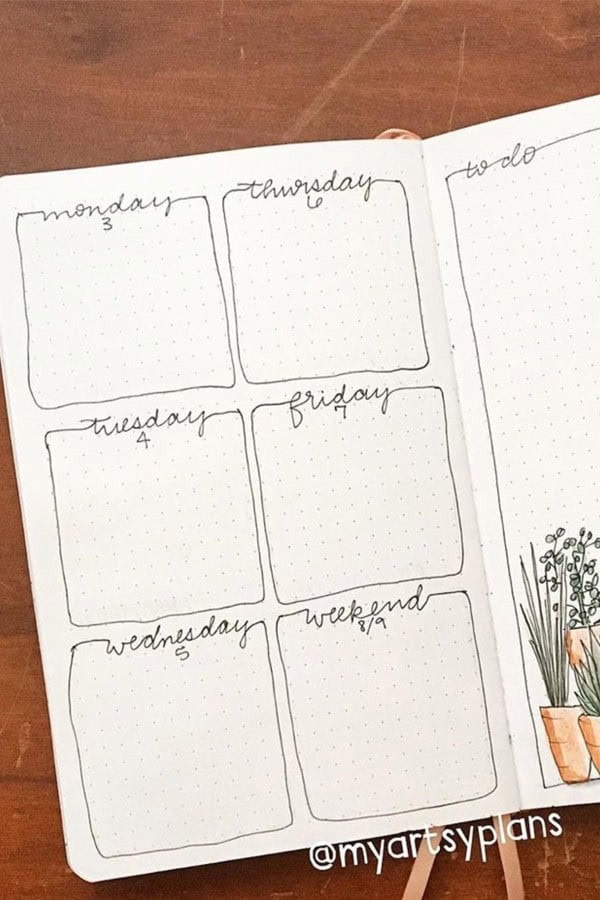 monday
3
thursday
6
tuesday
4
friday
7
wednesday
5
weekend
8/9
to do
@myartsyplans